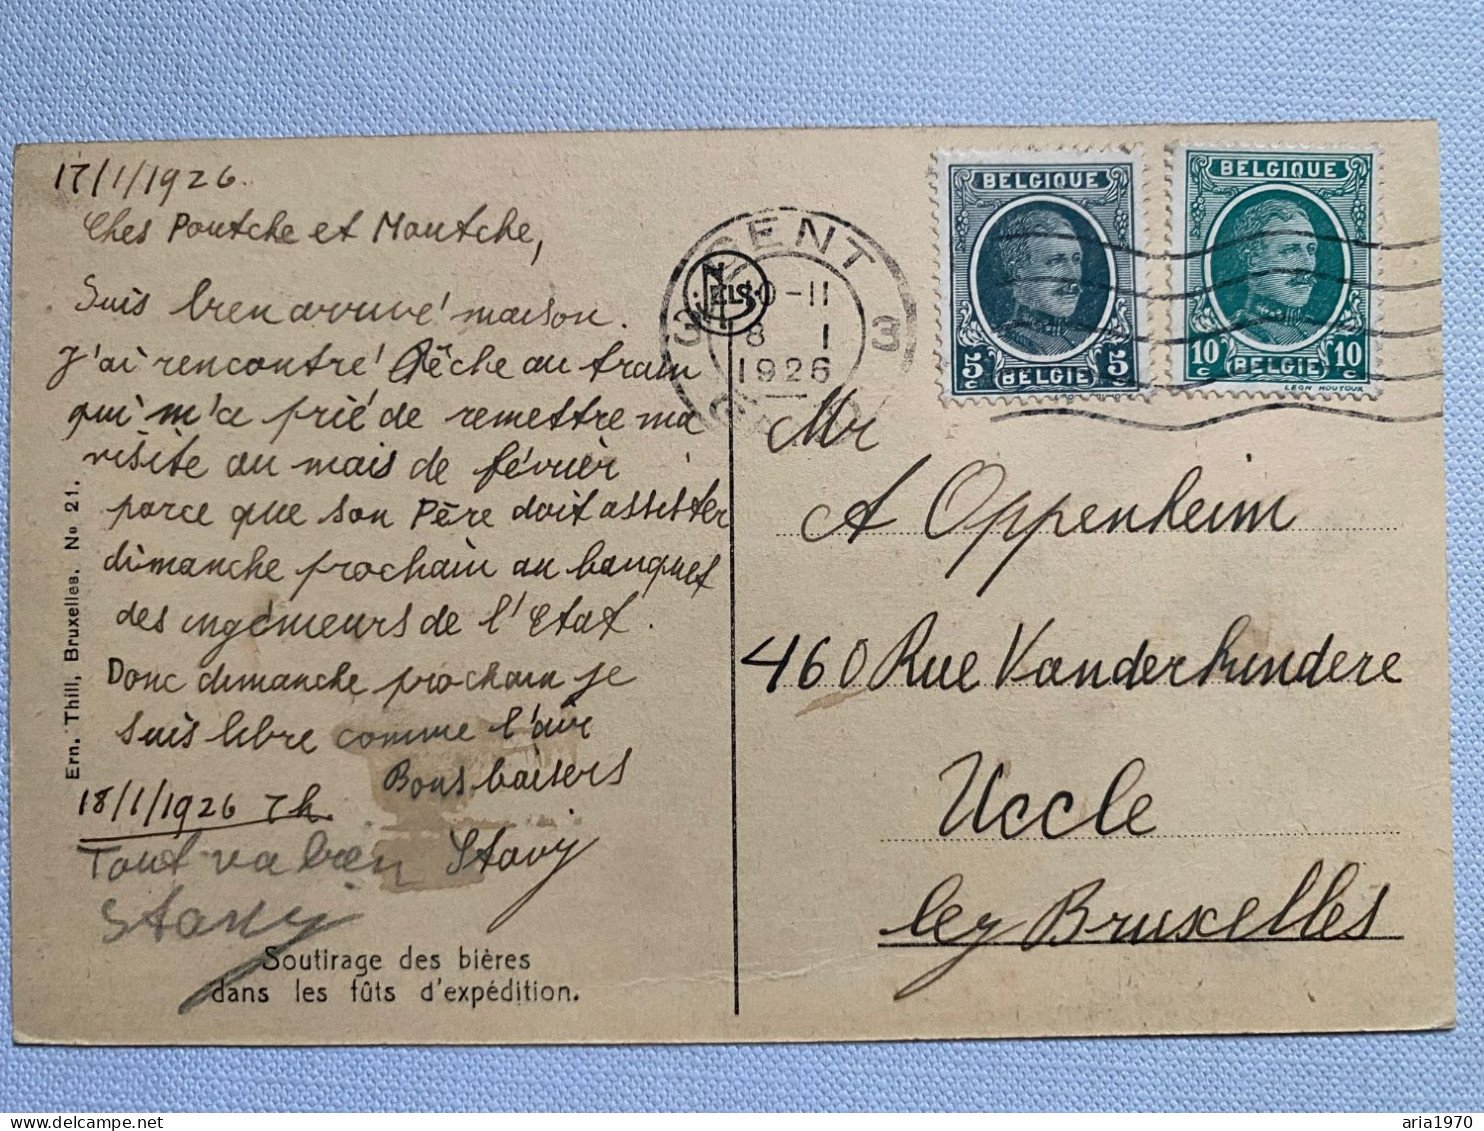 17/1/1926.
Ches Poutche et Moutche,
Suis bien arrivé maison.
J'ai rencontré Pêche au train
qui m'a prié de remettre ma
visite au mois de février
parce que son Père doit assister
dimanche prochain au banquet
des ingénieurs de l'Etat.
Donc dimanche prochain je
suis libre comme l'air
Bons baisers
Stavy
18/1/1926 7h.
Tout va bien
Stavy
Soutirage des bières
dans les fûts d'expédition.
Ern. Thill, Bruxelles. No 21.
NELS
GENT
3 3
10-11
8 I
1926
BELGIQUE
5c 5c
BELGIE
BELGIQUE
10c 10c
BELGIE
LEON HOUYOUX
Mr
A Oppenheim
460 Rue Vanderkindere
Uccle
lez Bruxelles
aria1970